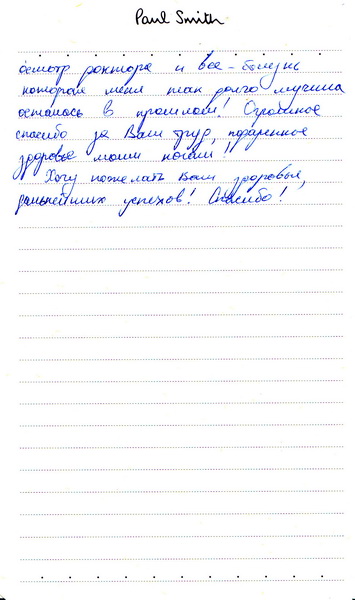 Paul Smith
осмотр доктора и все - болезнь
которая меня так долго мучила
осталось в прошлом! Огромное
спасибо за Ваш труд, подаренное
здоровье моим ногам!!
Хочу пожелать Вам здоровья,
дальнейших успехов! Спасибо!